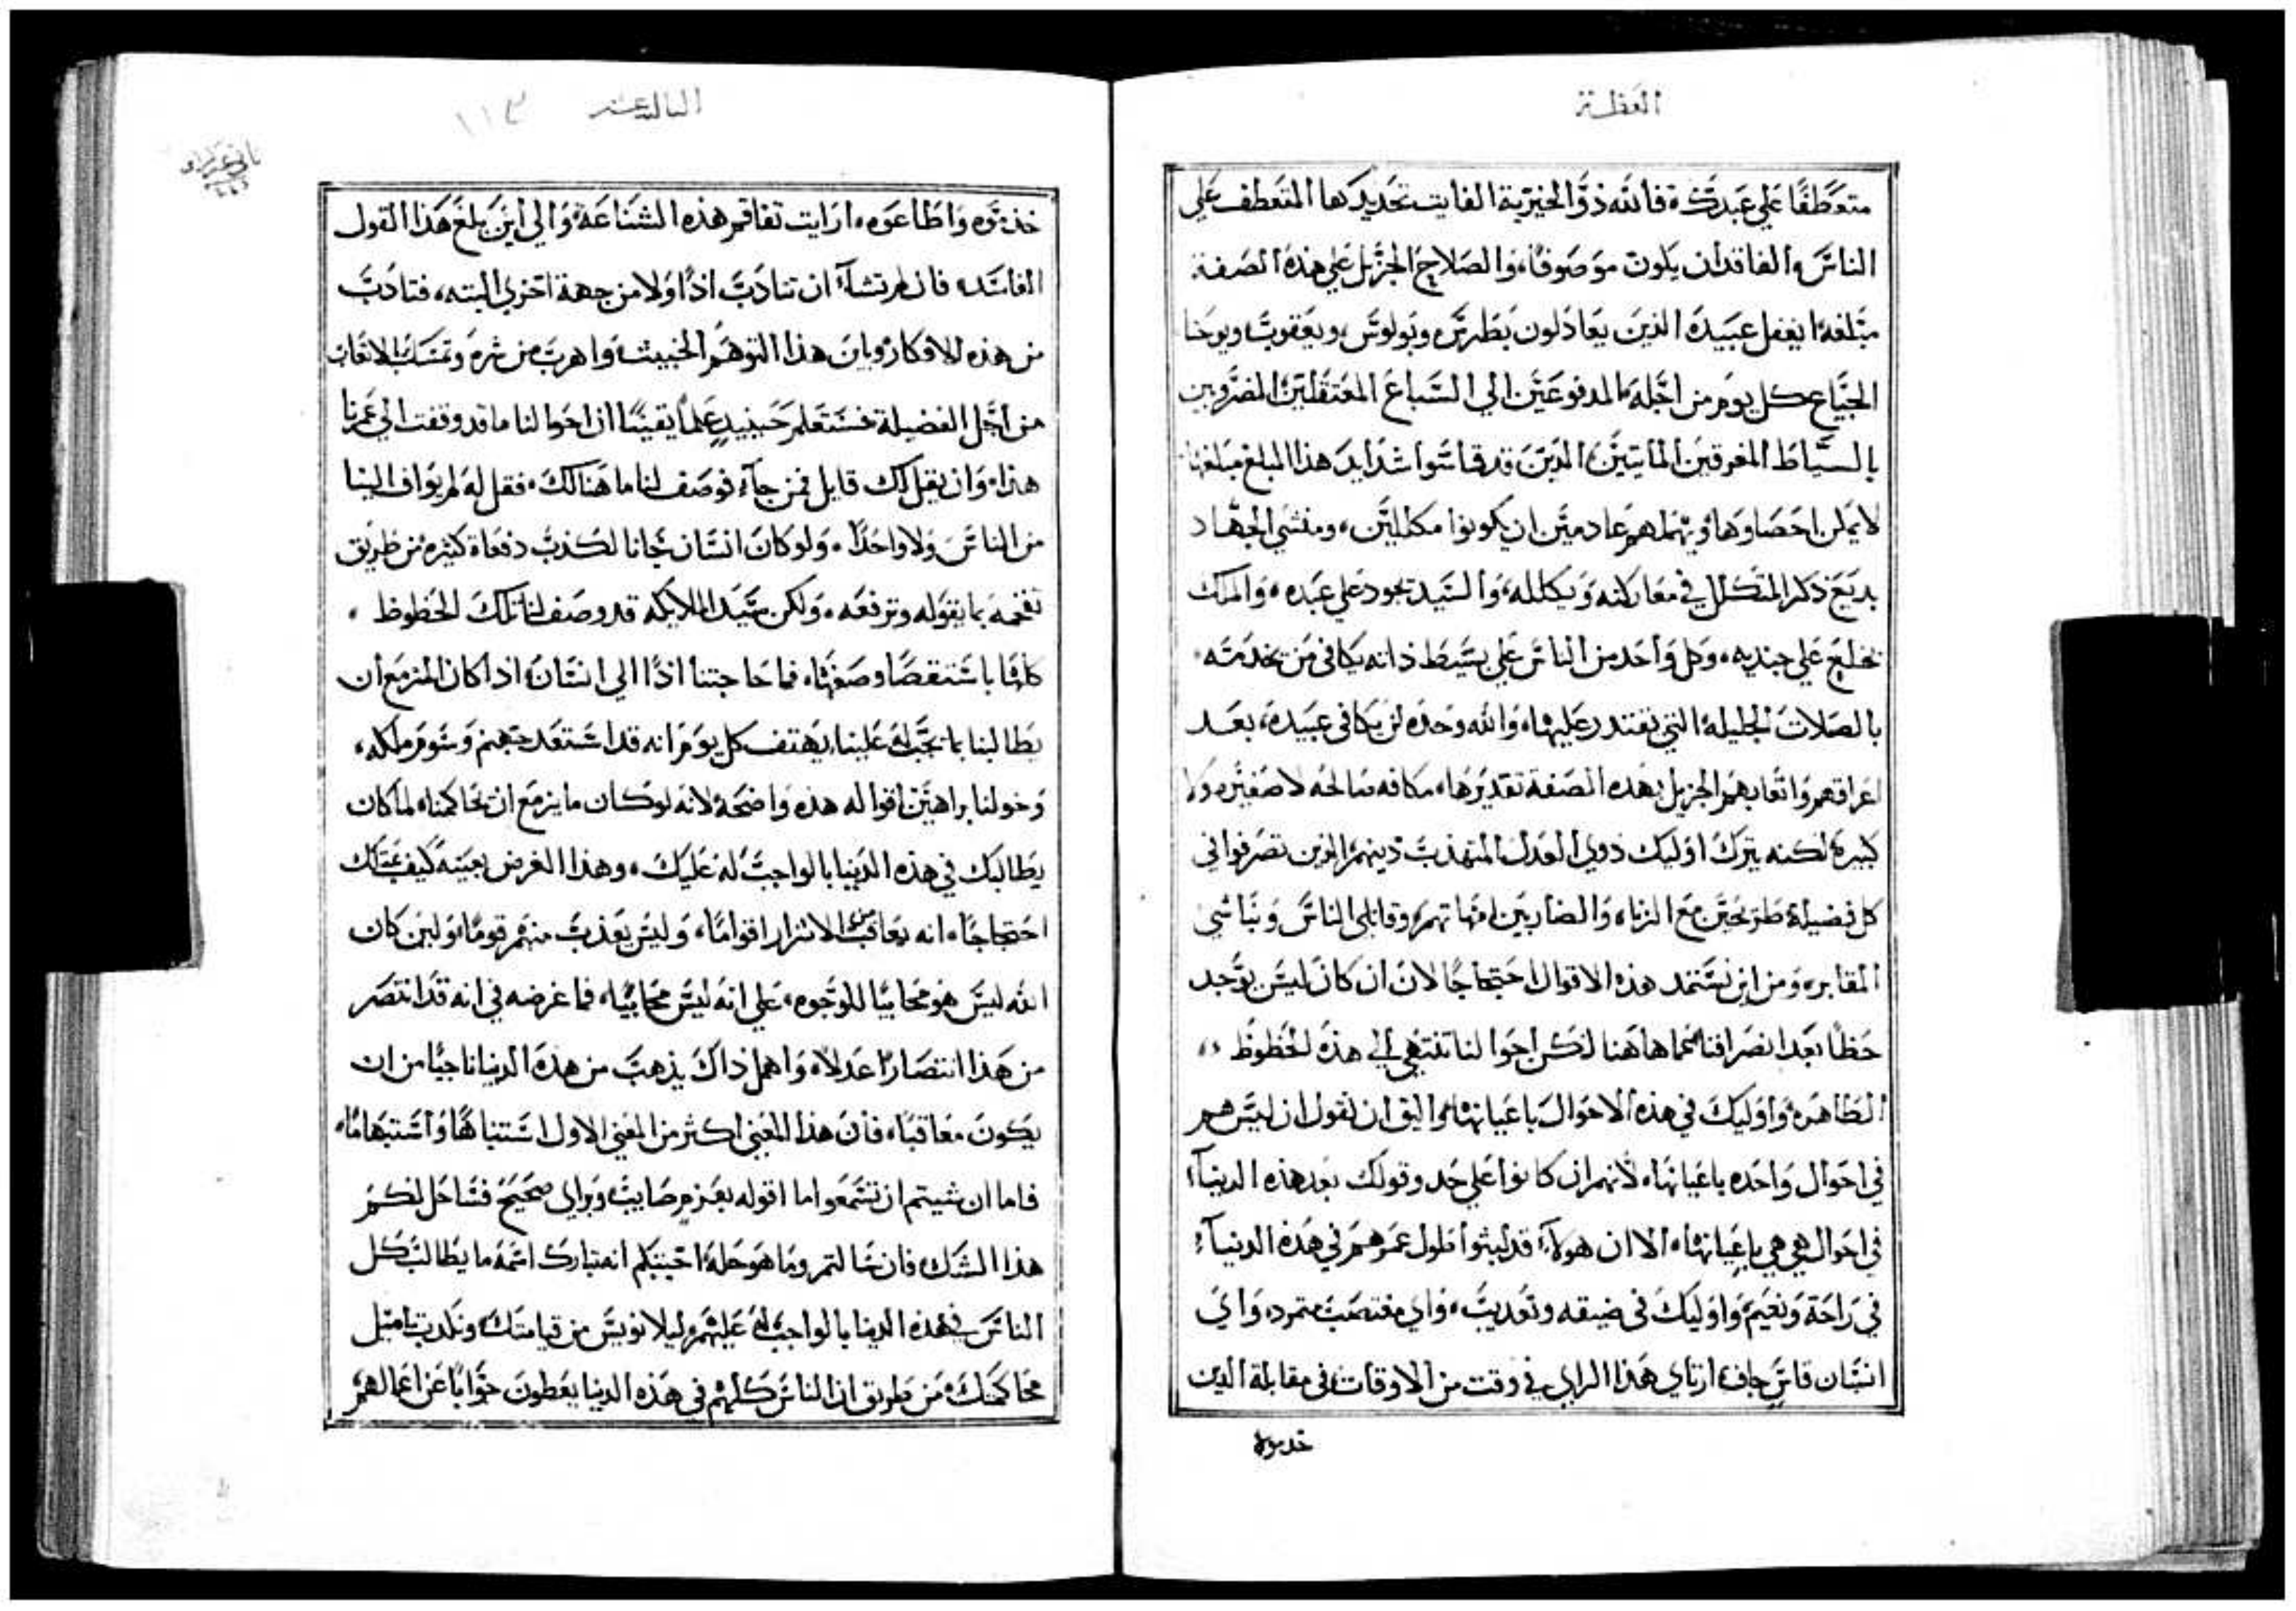 العظة
متعطفًا علي عبدك فالله ذو الخيرية الفايت تحديدها المتعطف علي
الناس الفاقد ان يكون موصوفًا، والصلاح الجزيل علي هذه الصفة
مبلغه ايغفل عبيده الذين يعادلون بطرس وبولوس ويعقوب ويوحنا
الجياع كل يوم من اجله المدفوعين الي السباع المعتقلين المضروبين
بالسياط المغرقين المايتين الذين قد قاسوا شدايد هذا المبلغ مبلغها
لا يمكن احصاوها ويهملهم عادمين ان يكونوا مكللين، ومنشي الجهاد
يديع ذكر المتكلل في معاركته ويكلله، والسيد يجود علي عبده، والملك
يخلع علي جنديه، وكل واحد من الناس علي بسيط ذاته يكافي من يخدمته
بالصلات الجليله التي يقتدر عليها، والله وحده لن يكافي عبيده، بعد
اعراقهم واتعابهم الجزيل بهذه الصفة تقديرها، مكافه صالحه لا صغيره ولا
كبيرة لكنه يترك اوليك ذوي العدل المتهذب دينهم الذين تصرفوا في
كل فضيلة طرحين مع الزناه والضاربين امهاتهم، وقاتلي الناس ونباشي
المقابر، ومن اين تستمد هذه الاقوال احتجاجًا لان ان كان ليس يوجد
حظًا بعد انصرافنا مما هاهنا لكن احوالنا تنتهي الي هذه الحظوظ
الظاهره، واوليك في هذه الاحوال باعيانها، واليق ان نقول ان ليس هم
في احوال واحده باعيانها، لانهم ان كانوا علي حد وقولك بعد هذه الدنيا
في احوال هي هي باعيانها، الا ان هولآء قد لبثوا طول عمرهم في هذه الدنيآ
في راحة ونعيم واوليك في ضيقه وتعذيب، واي مغتصب متمرد، واي
انسان قاس جاف ارتاي هذا الراي في وقت من الاوقات في مقابلة الذين
خدموه
الثالثة عشر ١١٣
خدموه واطاعوه، ارايت تفاقم هذه الشناعة والي اين بلغ هذا القول
الفاسد، فان لم تشآ ان تتادب اذًا ولا من جهة اخري البته، فتادب
من هذه الافكار وباين هذا التوهم الخبيث، واهرب من شره وتمسك بالاتعاب
من اجل الفضيلة فستعلم حينيدٍ علمًا يقينًا ان احوالنا ما قد وقفت الي عمرنا
هذا، وان يقل لك قايل فمن جآء فوصف لنا ما هنالك، فقل له لم يواف الينا
من الناس ولا واحدًا، ولو كان انسان جانا لكذب دفعاة كثيره من طريق
تفخمه بما يقوله وترفعه، ولكن سيد الملايكه قد وصف لنا تلك الحظوظ،
كلها باستقصا وصفها، فما حاجتنا اذًا الي انسان، اذا كان المزمع ان
يطالبنا بما يجب له علينا، يهتف كل يوم انه قد استعد جهنم وسوم ملكه،
وخولنا براهين اقواله هذه واضحة لانه لو كان ما يزمع ان يحاكمنا، لما كان
يطالبك في هذه الدنيا بالواجب له عليك، وهذا الغرض بعينه كيف عندك
احتجاجًا، انه يعاقب من الاشرار اقوامًا، وليس يعذب منهم قومًا، ولين كان
الله ليس هو محابيًا للوجوه، علي انه ليس محابيًا، فما غرضه في انه قد انتصر
من هذا انتصارًا عدلا، واهمل ذاك يذهب من هذه الدنيا ناجيًا من ان
يكون معاقبًا، فان هذا المعني اكثر من المعني الاول اشتباهًا واستبهامًا،
فاما ان شيتم ان تسمعوا ما اقوله بعزم صايب، وبراي صحيح فساحل لكم
هذا الشك، فان سالتم وما هو حله اجيبكم انه تبارك اسمه ما يطالب كل
الناس في هذه الدنيا بالواجب له عليهم، ليلا نويس من قيامتك ونكدب بامل
محاكمتك، من طريق ان الناس كلهم في هذه الدنيا يعطون جوابًا عن اعمالهم